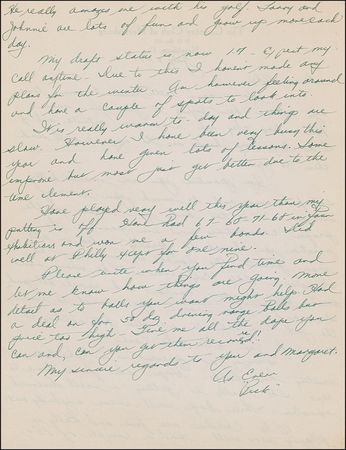 He really amazes me with his golf. Tammy and
Johnnie are lots of fun and grow up more each
day.
My draft status is now 1A - Expect my
call anytime - Due to this I havent made any
plans for the winter. Am however feeling around
and have a couple of spots to look into
It is really warm to-day and things are
slow. However I have been very busy this
year and have given lots of lessons. Some
improve but most just get better due to the
time element.
Have played very well this year tho my
putting is off. Have had 67-68-71-68 in four
exhibitions and won me a few bonds. Did
well at Philly except for one nine.
Please write when you find time and
let me know how things are going. More
detail as to balls you want might help. Had
a deal on for 50 doz driving range balls but
price too high - Give me all the dope you
can and, can you get them rewound?
My sincere regards to you and Margaret.
As Ever
Dick